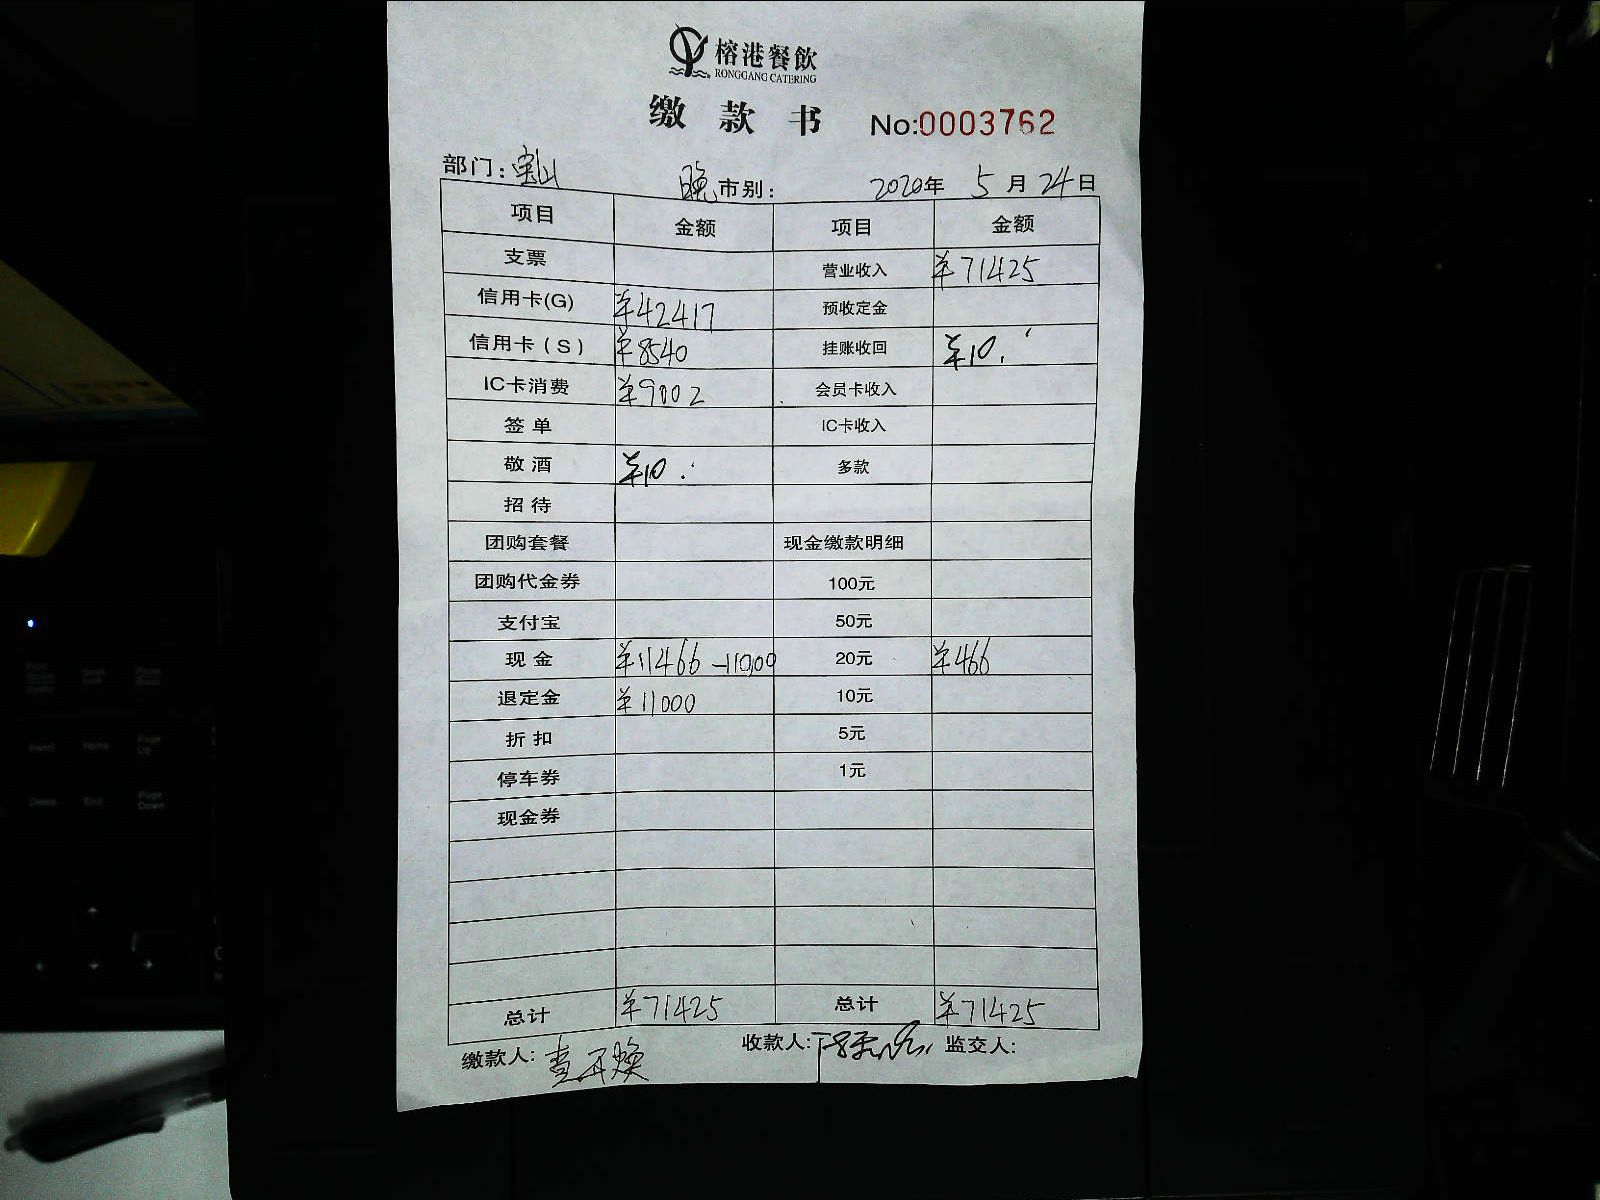 榕港餐飲
RONGGANG CATERING
缴款书 No:0003762
部门:宝山 晚市别: 2020年 5月24日
项目 金额 项目 金额
支票 营业收入 ¥71425
信用卡(G) ¥42417 预收定金
信用卡(S) ¥8540 挂账收回 ¥10.
IC卡消费 ¥9002 会员卡收入
签单 IC卡收入
敬酒 ¥10. 多款
招待
团购套餐 现金缴款明细
团购代金券 100元
支付宝 50元
现金 ¥11466-11000 20元 ¥466
退定金 ¥11000 10元
折扣 5元
停车券 1元
现金券
总计 ¥71425 总计 ¥71425
缴款人: 收款人: 监交人:
Page Up
Insert Home
Delete End Page Down